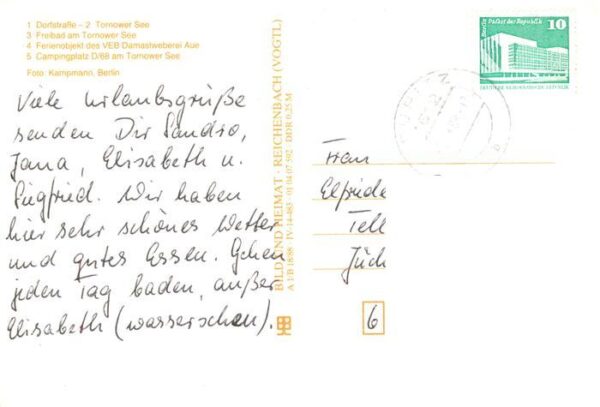 1 Dorfstraße – 2 Tornower See
3 Freibad am Tornower See
4 Ferienobjekt des VEB Damastweberei Aue
5 Campingplatz D/68 am Tornower See
Foto: Kampmann, Berlin
Viele Urlaubsgrüße
senden Dir Sandro,
Jana, Elisabeth u.
Siegfried. Wir haben
hier sehr schönes Wetter
und gutes Essen. Gehen
jeden Tag baden, außer
Elisabeth (wasserscheu).
BILD UND HEIMAT · REICHENBACH (VOGTL)
A 1/B 18/88 IV-14-483 01 04 07 592 DDR 0,25 M
Berlin · Palast der Republik
10
DEUTSCHE DEMOKRATISCHE REPUBLIK
Frau
Elfriede
Tell
Jüch
6